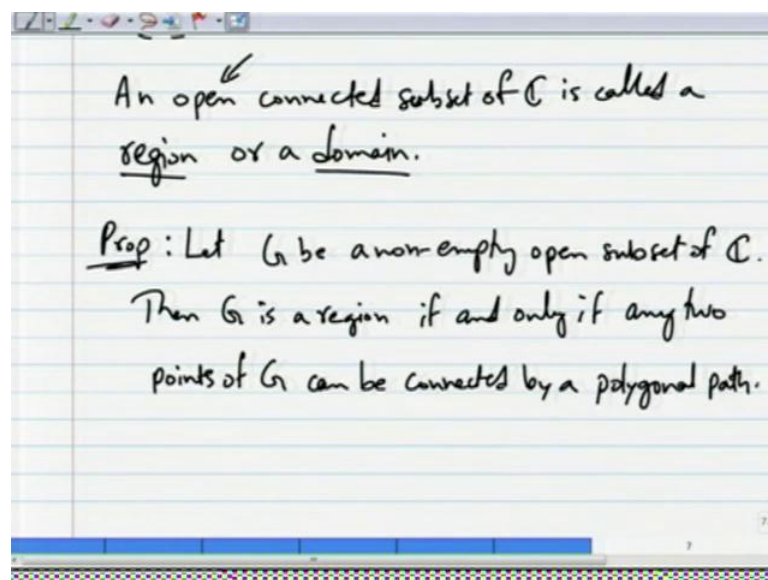 An open connected subset of ℂ is called a
region or a domain.
Prop : Let G be a non-empty open subset of ℂ.
Then G is a region if and only if any two
points of G can be connected by a polygonal path.
7